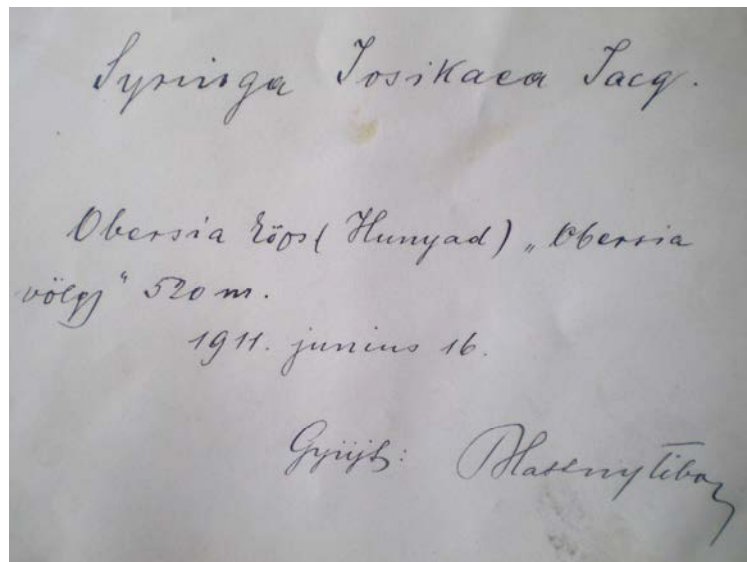 Syringa Josikaea Jacq.
Obersia (Hunyad) „Obersia
völgy“ 520 m.
1911. junius 16.
Gyüjt: Blattny Tibor